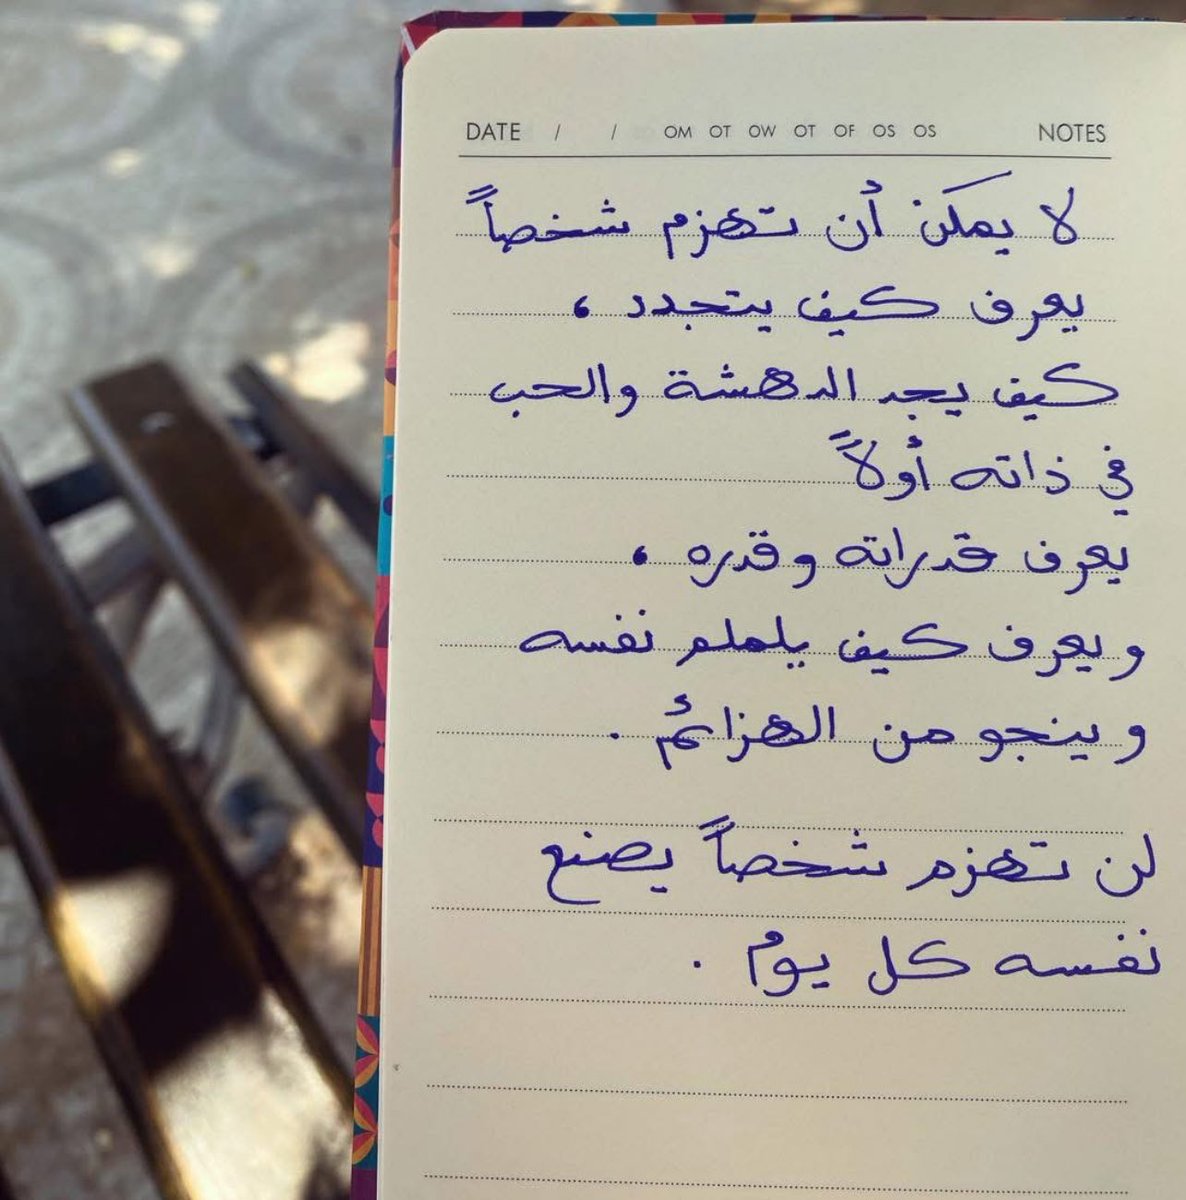 DATE / / OM OT OW OT OF OS OS NOTES
لا يمكن أن تهزم شخصاً
يعرف كيف يتجدد ،
كيف يجد الدهشة والحب
في ذاته أولاً
يعرف قدراته وقدره ،
ويعرف كيف يلملم نفسه
وينجو من الهزائم .
لن تهزم شخصاً يصنع
نفسه كل يوم .